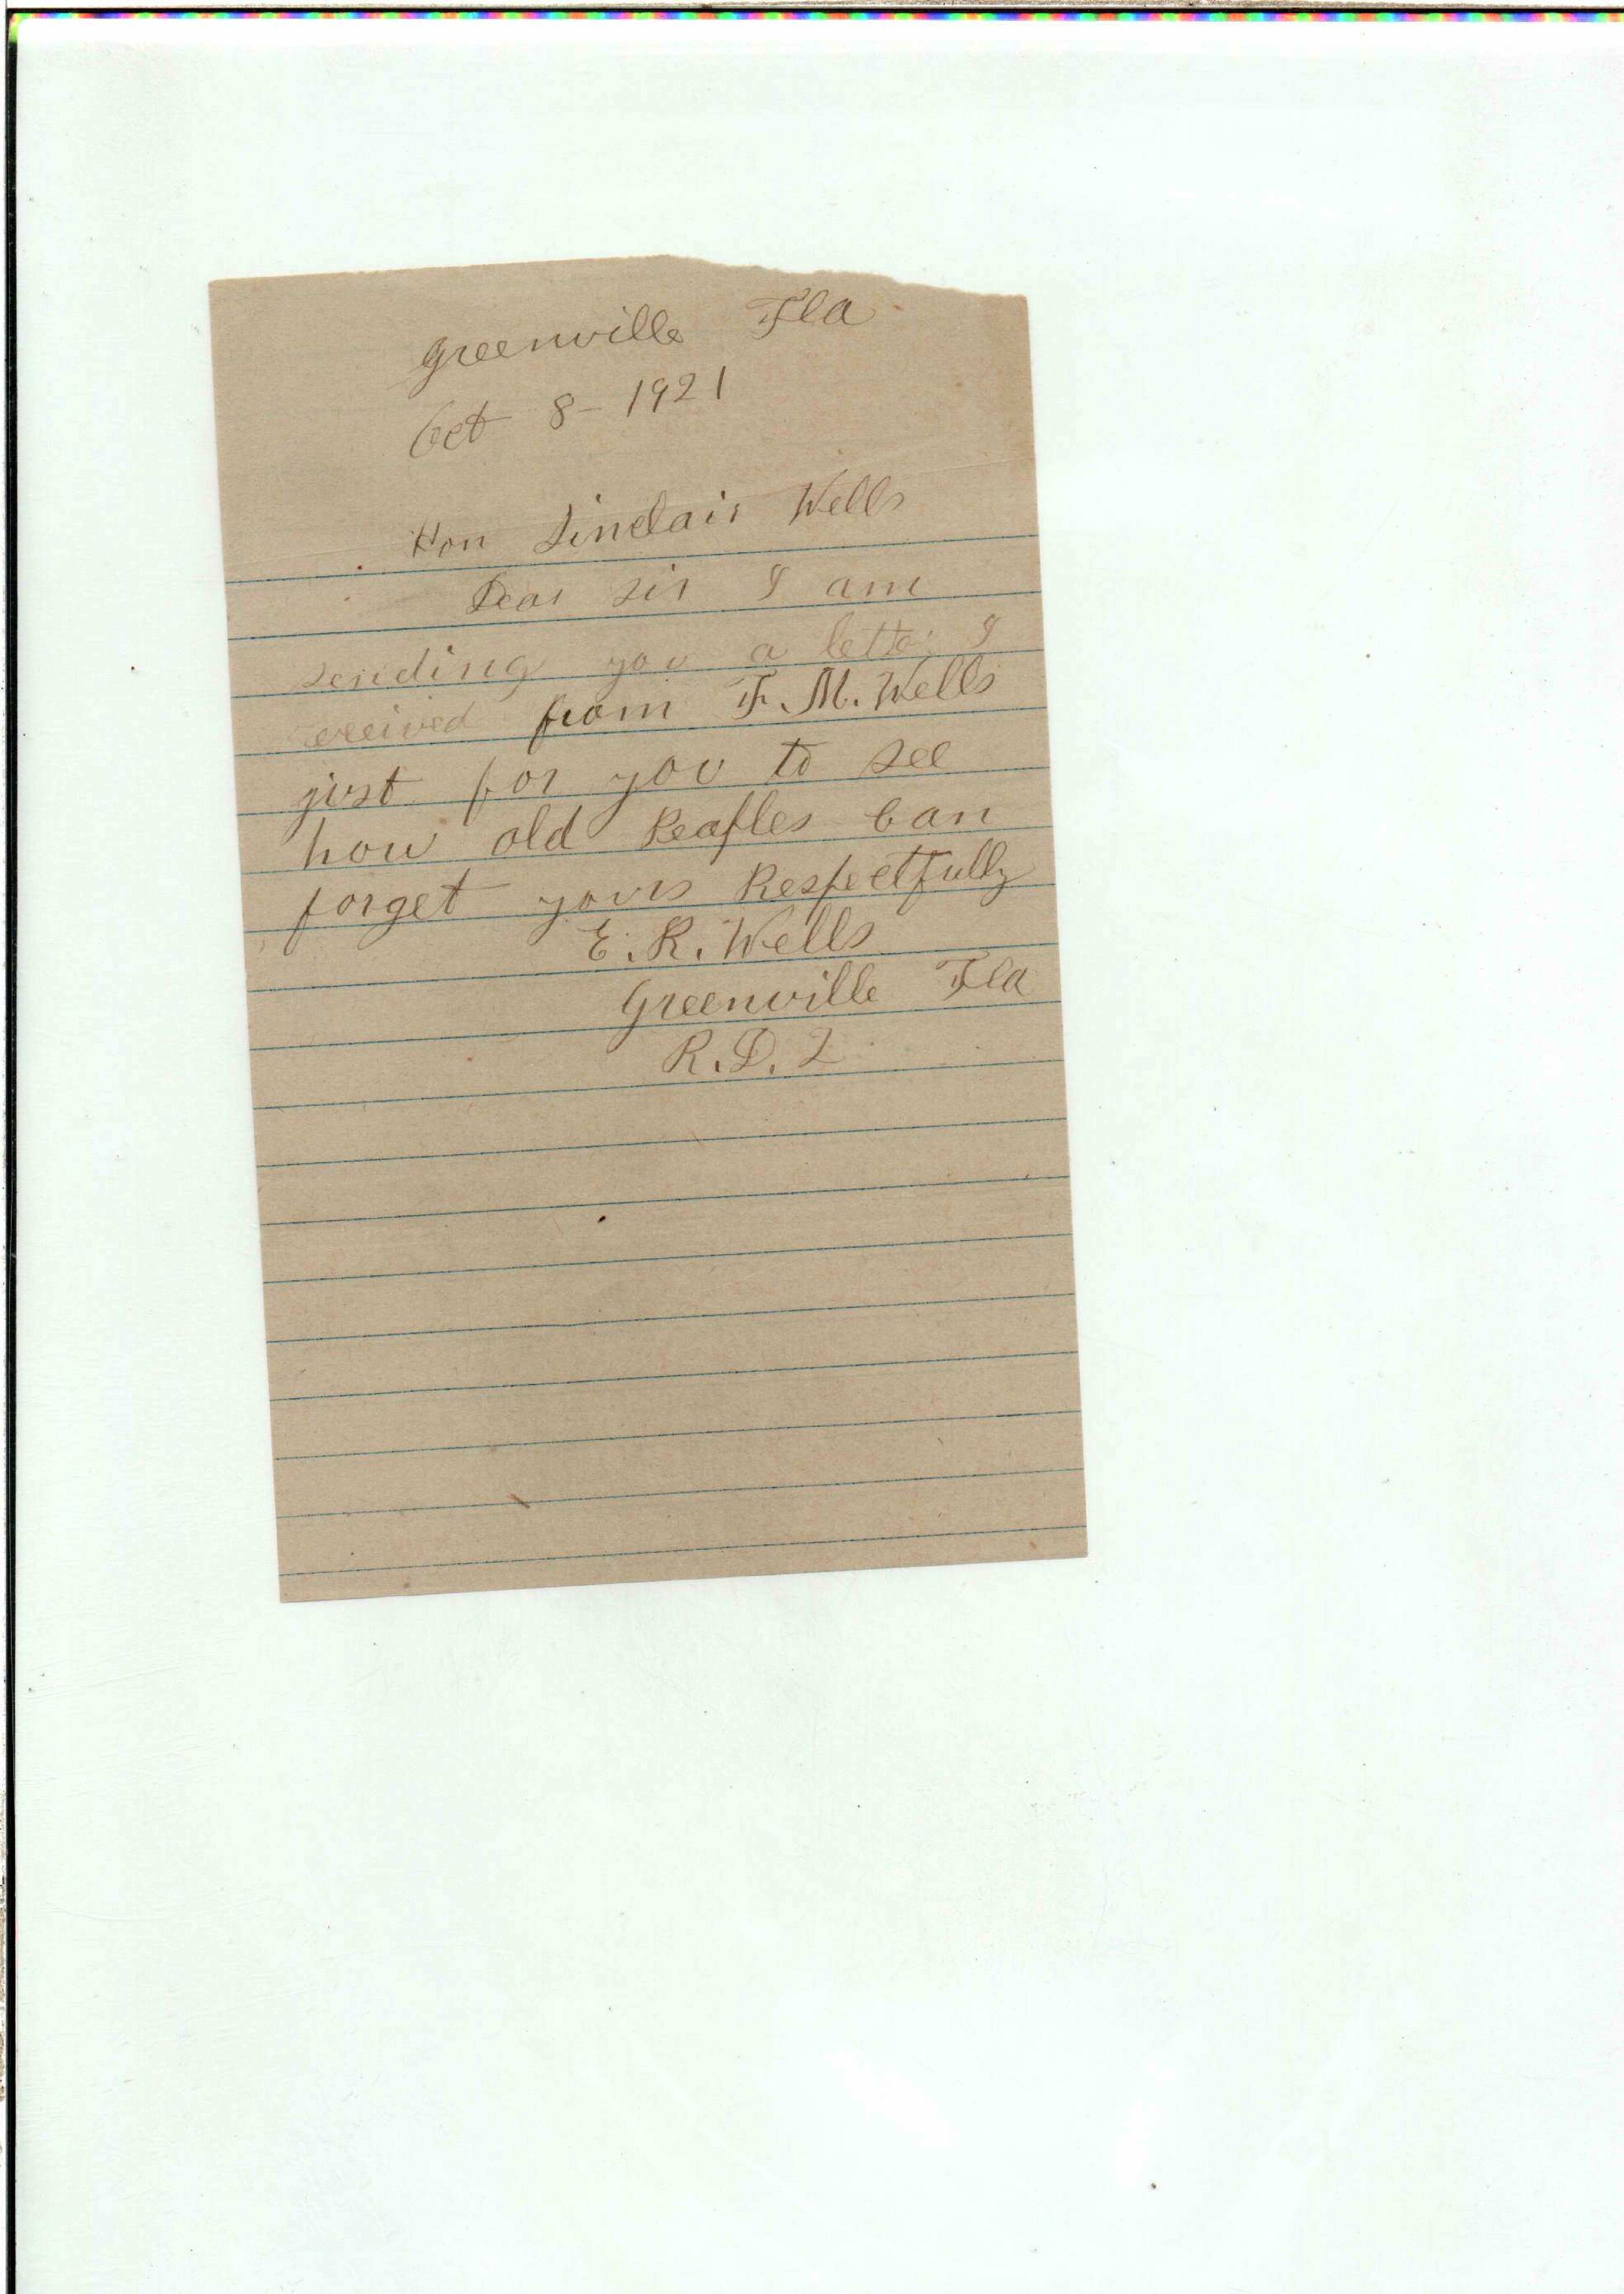 Greenville Fla
Oct 8 - 1921
Hon Sinclair Wells
Dear Sir I am
sending you a letter I
received from F. M. Wells
just for you to see
how old Peaples Can
forget yours Respectfully
E. R. Wells
Greenville Fla
R. D. 2